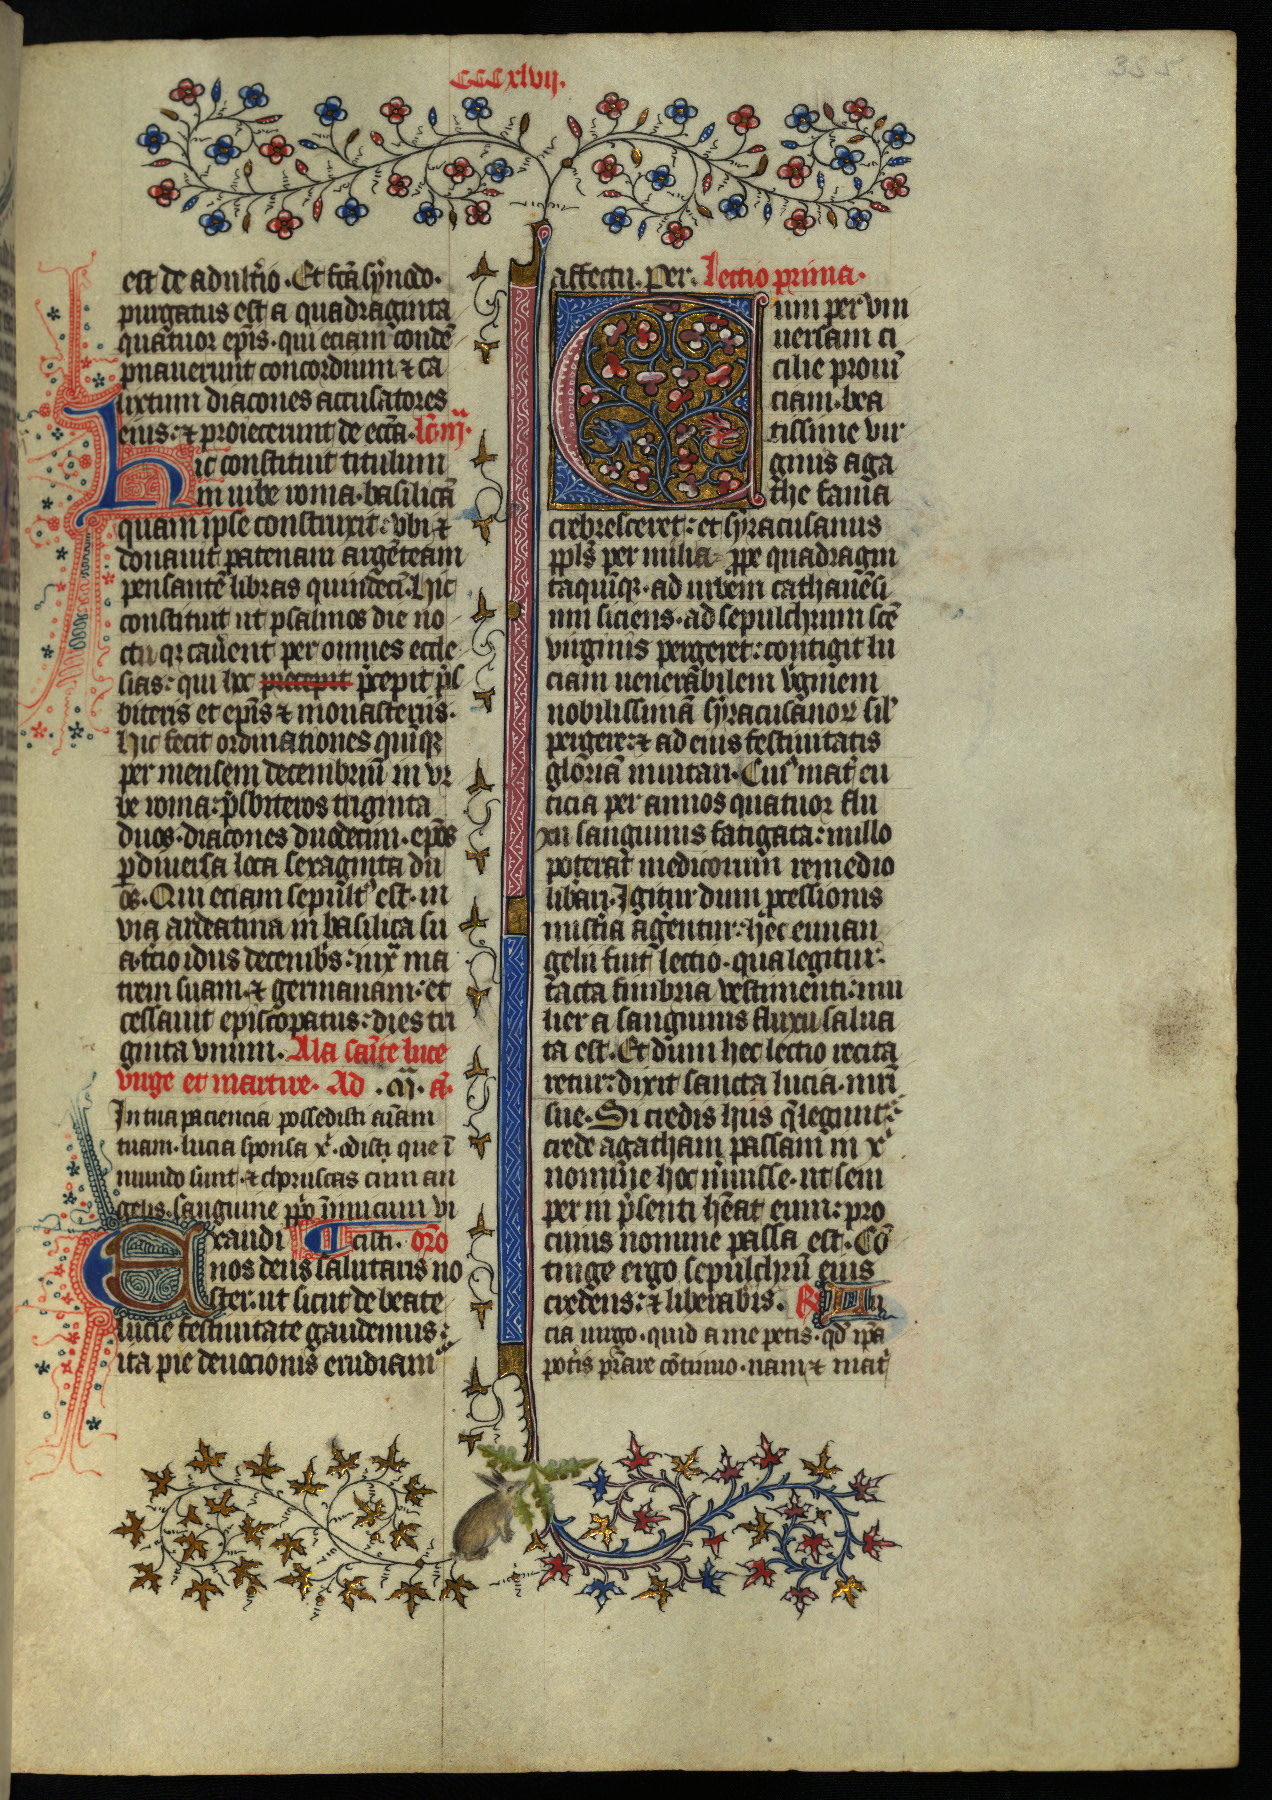 CCCxlvij.
355
est de adultio. Et fca synodo.
purgatus est a quadraginta
quatuor epis. qui eciam conde
pnauerunt concordium & ca
lixtum diacones accusatores
eius: & proiecerunt de ecca. lco iij.
Hic constituit titulum
in urbe roma. basilica
quam ipse construxit: vbi &
donauit patenam argenteam
pensante libras quindeci. Hic
constituit ut psalmos die no
ctuqz cauent per omnes eccle
sias: qui hoc precepit pcepit psl
biteris et epis & monasterijs.
Hic fecit ordinationes quiqz
per mensem decembriu in vr
be roma: psbiteros triginta
duos. diacones duodecim. epos
p diuersa loca sexaginta du
os. Qui eciam sepult est. in
via ardeatina in basilica su
a. tcio idus decembs: iux ma
trem suam. & germanam: et
cessauit episcopatus: dies tri
ginta vnum. Ala sante luce
virge et martire. Ad . m. a.
In tua paciencia possedisti aiam
tuam. lucia sponsa x. odisti que i
mundo sunt. & choruscas cum an
gelis. sanguine pprio inimicum vi
cisti. oro
Exaudi
nos deus salutaris no
ster. ut sicut de beate
lucie festiuitate gaudemus:
ita pie deuocionis erudiam
affectu. Per. Lectio prima.
Cum per vni
uersam ci
cilie proui
ciam. bea
tissime vir
ginis aga
the fama
crebresceret: et syracusanus
ppls per milia ppe quadragin
taquiqz. ad urbem cathanesi
um siciens. ad sepulchrum sce
virginis pergeret: contigit lu
ciam uenerabilem vginem
nobilissima syracusanorz sil
pergere: & ad eius festiuitatis
gloriam inuitari. Cuius mat eu
ticia per annos quatuor flu
xu sanguinis fatigata: nullo
poterat medicorum remedio
libari. Igitur dum pcessionis
mistia agentur: hec euuan
gelii fuit lectio. qua legitur:
tacta fimbria vestimenti: mu
lier a sanguinis fluxu salua
ta est. Et dum hec lectio recita
retur: dixit sancta lucia. mri
sue. Si credis hiis q leguntr:
crede agatham passam in x
nomine hoc mruisse. ut sem
per in psenti heat eum: pro
cuius nomine passa est. Co
tinge ergo sepulchru eius
credens: & liberabis. R Lu
cia uirgo. quid a me petis. qd ipa
potis prare cotinuo. nam & mat